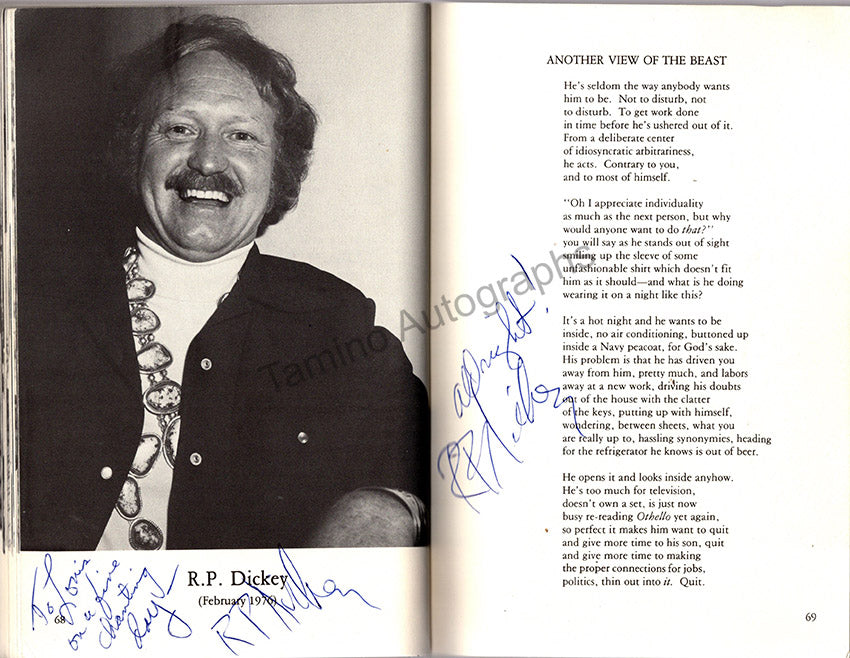 R.P. Dickey
(February 1976)
To Louis
on a fine
chanting
day
RP Dickey
68
ANOTHER VIEW OF THE BEAST
He's seldom the way anybody wants
him to be. Not to disturb, not
to disturb. To get work done
in time before he's ushered out of it.
From a deliberate center
of idiosyncratic arbitrariness,
he acts. Contrary to you,
and to most of himself.
"Oh I appreciate individuality
as much as the next person, but why
would anyone want to do that?"
you will say as he stands out of sight
smiling up the sleeve of some
unfashionable shirt which doesn't fit
him as it should—and what is he doing
wearing it on a night like this?
It's a hot night and he wants to be
inside, no air conditioning, buttoned up
inside a Navy peacoat, for God's sake.
His problem is that he has driven you
away from him, pretty much, and labors
away at a new work, driving his doubts
out of the house with the clatter
of the keys, putting up with himself,
wondering, between sheets, what you
are really up to, hassling synonymies, heading
for the refrigerator he knows is out of beer.
He opens it and looks inside anyhow.
He's too much for television,
doesn't own a set, is just now
busy re-reading Othello yet again,
so perfect it makes him want to quit
and give more time to his son, quit
and give more time to making
the proper connections for jobs,
politics, thin out into it. Quit.
alright!
RP Dickey
69
Tamino Autographs